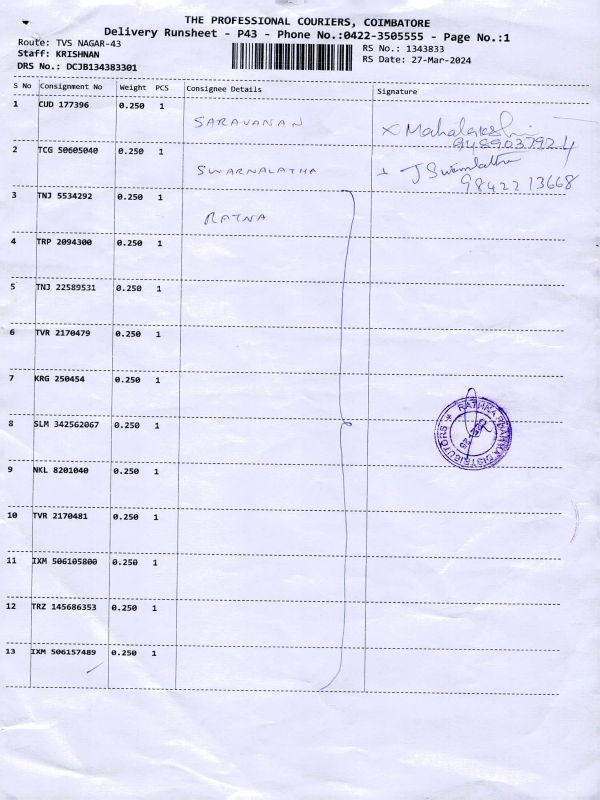 THE PROFESSIONAL COURIERS, COIMBATORE
Delivery Runsheet - P43 - Phone No.:0422-3505555 - Page No.:1
Route: TVS NAGAR-43
Staff: KRISHNAN
DRS No.: DCJB134383301
RS No.: 1343833
RS Date: 27-Mar-2024
S No Consignment No Weight PCS Consignee Details Signature
1 CUD 177396 0.250 1 SARAVANAN Mahalakshmi
9489037924
2 TCG 50605040 0.250 1 SWARNALATHA J Swarnlatha
9842213668
3 TNJ 5534292 0.250 1 RATNA
4 TRP 2094300 0.250 1
5 TNJ 22589531 0.250 1
6 TVR 2170479 0.250 1
7 KRG 250454 0.250 1
8 SLM 342562067 0.250 1
9 NKL 8201040 0.250 1
10 TVR 2170481 0.250 1
11 IXM 506105800 0.250 1
12 TRZ 145686353 0.250 1
13 IXM 506157489 0.250 1
RATHNA
DISTRIBUTORS